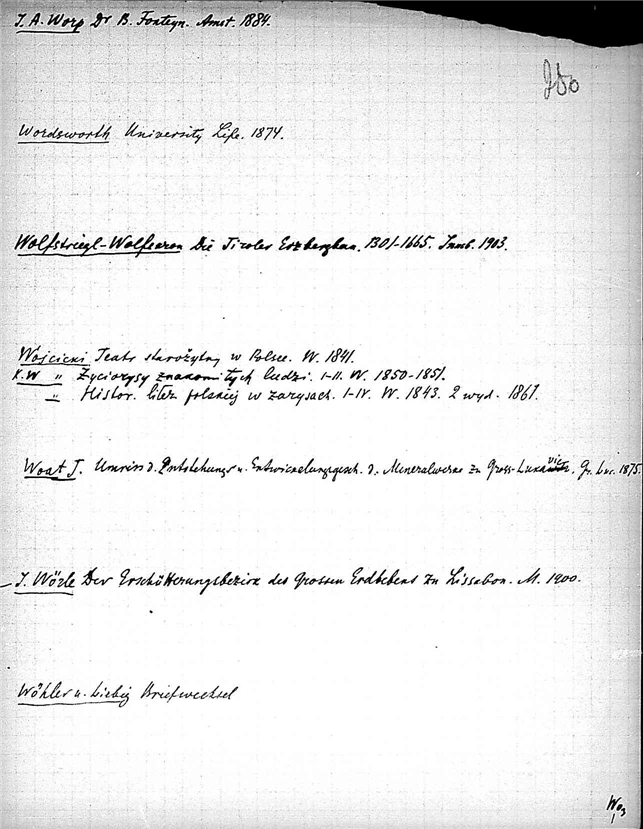 J. A. Worp Dr B. Fonteyn. Amst. 1884.
Wordsworth University Life. 1874.
Wolfstriegl-Wolfscron Die Tiroler Erzbergbau. 1301-1665. Innsb. 1903.
Wojcicki Teatr starożytny w Polsce. W. 1841.
K.W „ Życiorysy znakomitych ludzi. I-II. W. 1850-1851.
„ Histor. liter. polskiej w zarysach. I-IV. W. 1843. 2 wyd. 1861.
J. Umriss d. Entstehungs u. Entwickelungsgesch. d. Mineralwerke zu Gross-Lukavic, Gr. Luc. 1875.
J. Wörle Der Erschütterungsbezirk des Grossen Erdbebens zu Lissabon. M. 1900.
Wöhler u. Liebig Briefwechsel